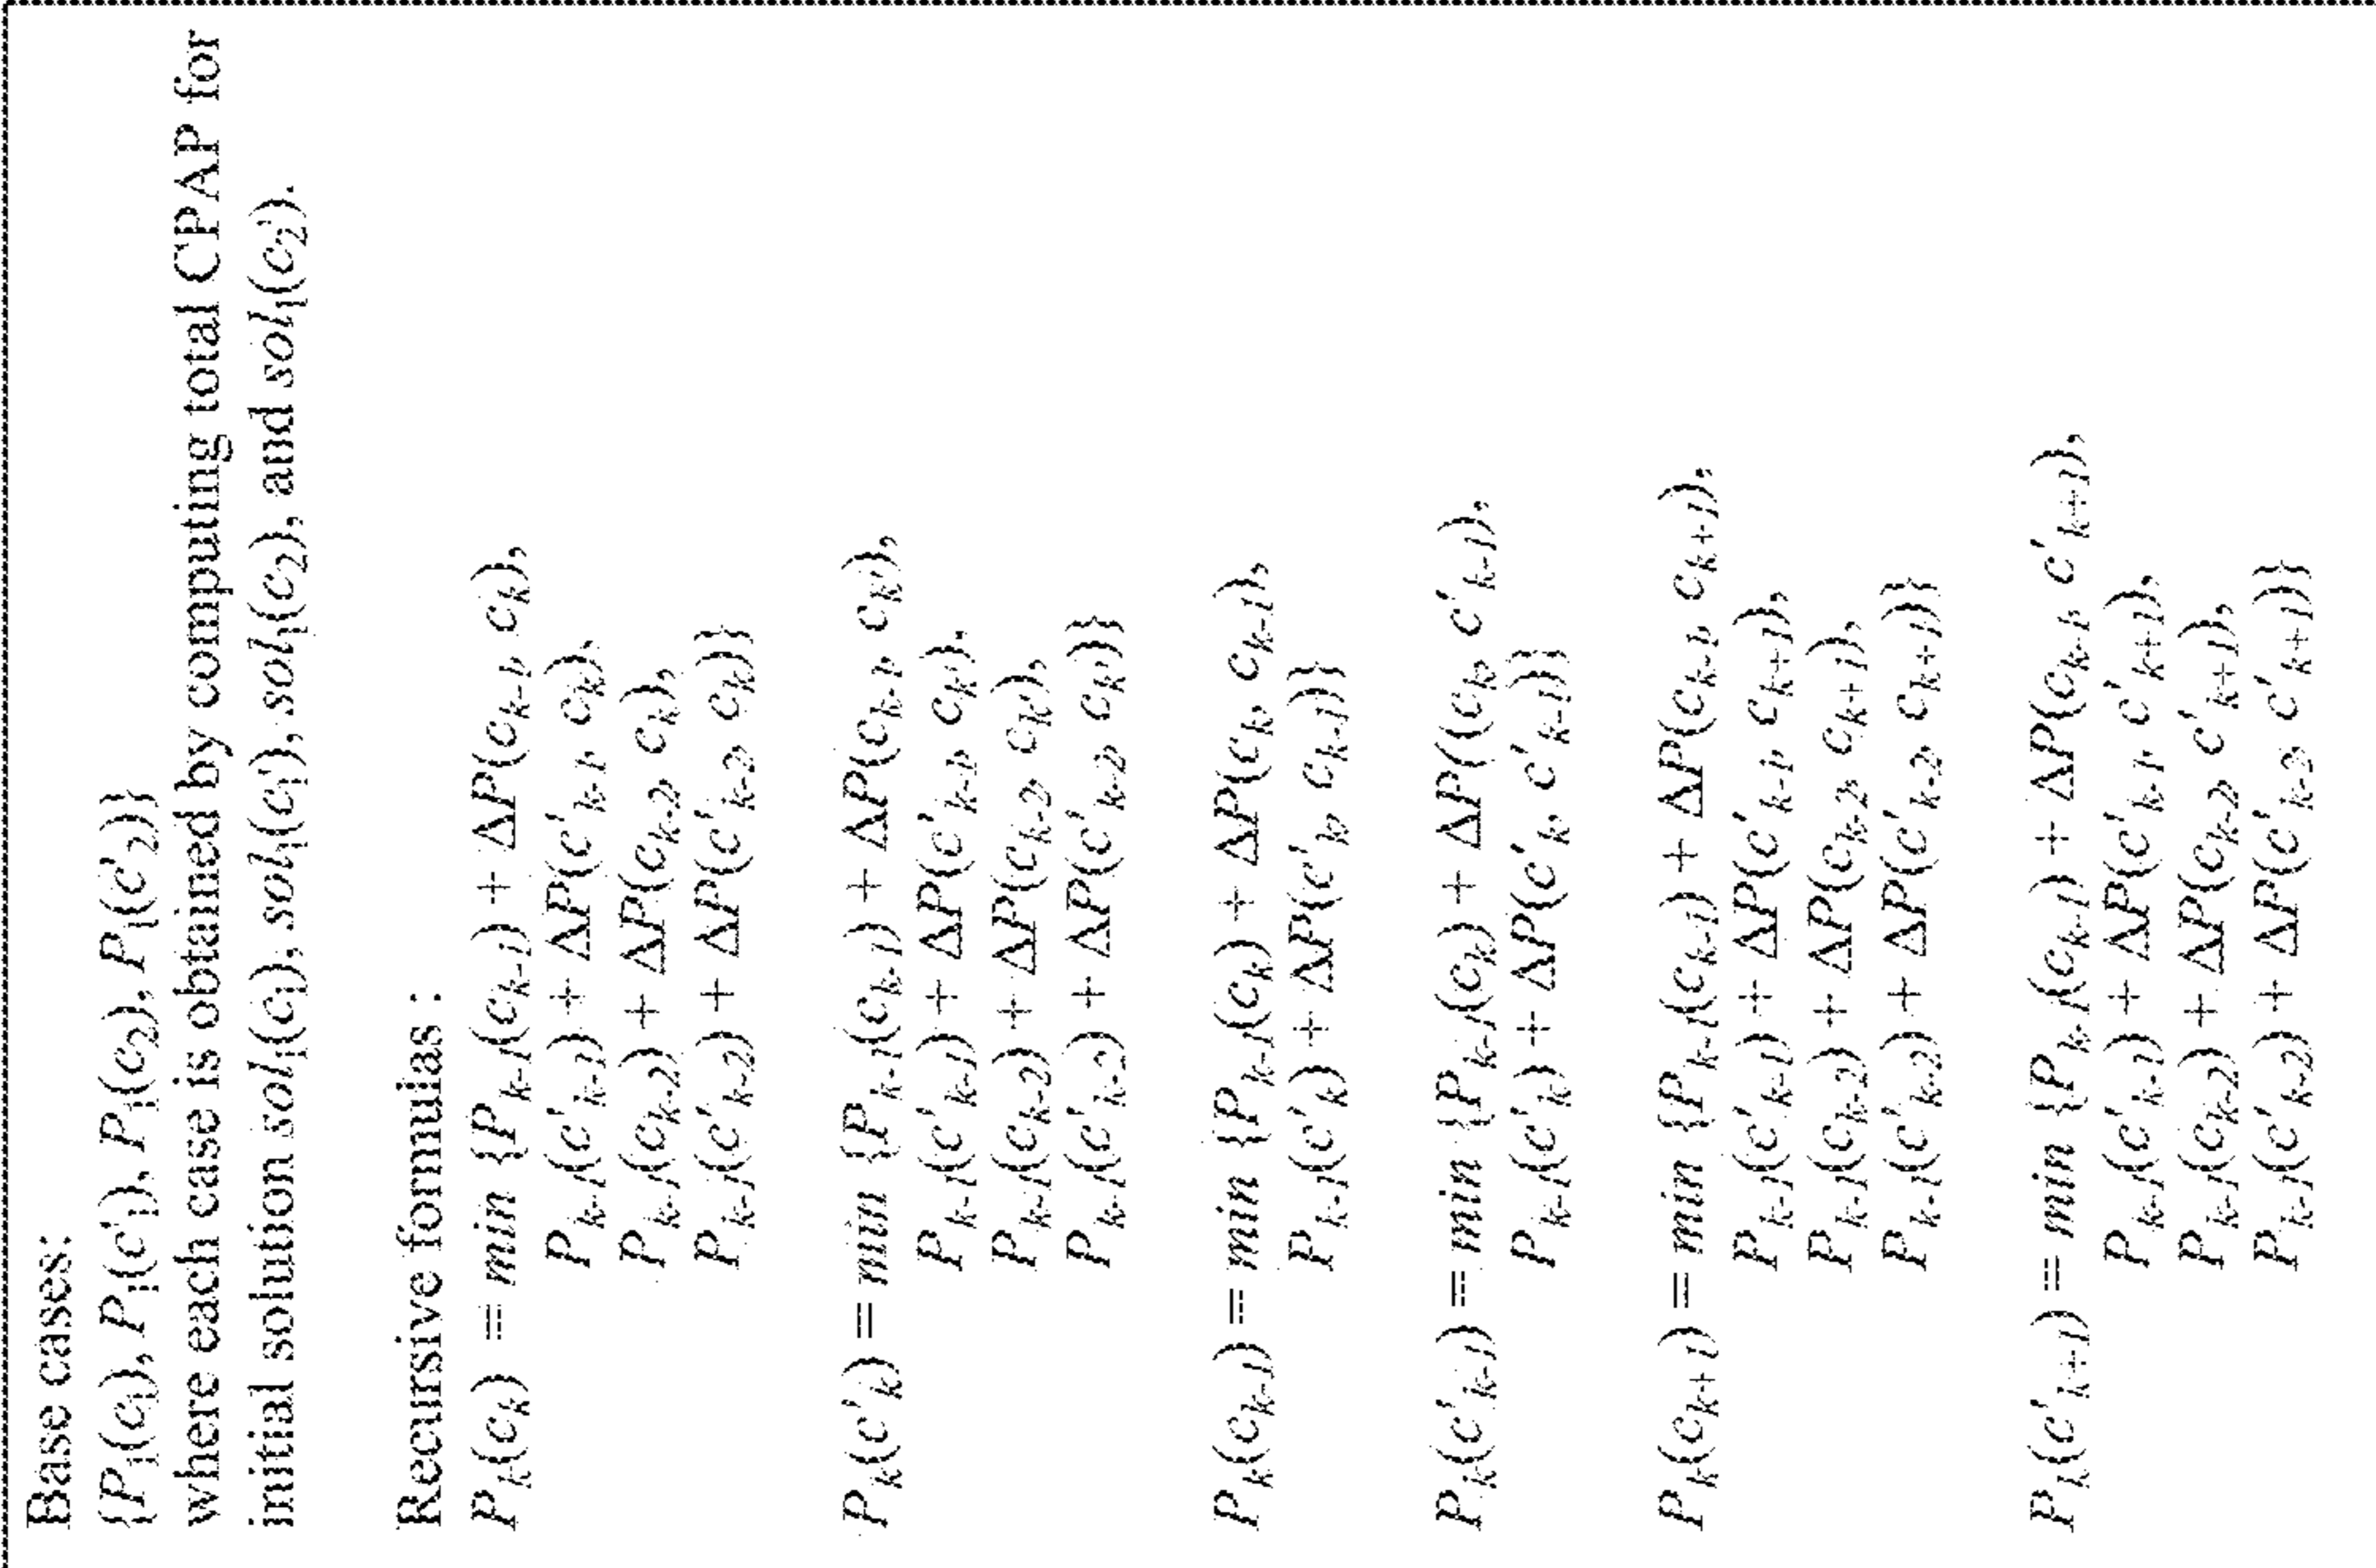 Base cases:
{P₁(c₁), P₁(c'₁), P₁(c₂), P₁(c'₂)}
where each case is obtained by computing total CPAP for
initial solution sol₁(c₁), sol₁(c₁'), sol₁(c₂), and sol₁(c₂').
Recursive formulas :
Pₖ(cₖ) = min {Pₖ₋₁(cₖ₋₁) + ΔP(cₖ₋₁, cₖ),
Pₖ₋₁(c'ₖ₋₁) + ΔP(c'ₖ₋₁, cₖ),
Pₖ₋₁(cₖ₋₂) + ΔP(cₖ₋₂, cₖ),
Pₖ₋₁(c'ₖ₋₂) + ΔP(c'ₖ₋₂, cₖ)}
Pₖ(c'ₖ) = min {Pₖ₋₁(cₖ₋₁) + ΔP(cₖ₋₁, cₖ'),
Pₖ₋₁(c'ₖ₋₁) + ΔP(c'ₖ₋₁, cₖ'),
Pₖ₋₁(cₖ₋₂) + ΔP(cₖ₋₂, cₖ'),
Pₖ₋₁(c'ₖ₋₂) + ΔP(c'ₖ₋₂, cₖ')}
Pₖ(cₖ₋₁) = min {Pₖ₋₁(cₖ) + ΔP(cₖ, cₖ₋₁),
Pₖ₋₁(c'ₖ) + ΔP(c'ₖ, cₖ₋₁)}
Pₖ(c'ₖ₋₁) = min {Pₖ₋₁(cₖ) + ΔP((cₖ, c'ₖ₋₁),
Pₖ₋₁(c'ₖ) + ΔP(c'ₖ, c'ₖ₋₁)}
Pₖ(cₖ₊₁) = min {Pₖ₋₁(cₖ₋₁) + ΔP(cₖ₋₁, cₖ₊₁),
Pₖ₋₁(c'ₖ₋₁) + ΔP(c'ₖ₋₁, cₖ₊₁),
Pₖ₋₁(cₖ₋₂) + ΔP(cₖ₋₂, cₖ₊₁),
Pₖ₋₁(c'ₖ₋₂) + ΔP(c'ₖ₋₂, cₖ₊₁)}
Pₖ(c'ₖ₊₁) = min {Pₖ₋₁(cₖ₋₁) + ΔP(cₖ₋₁, c'ₖ₊₁),
Pₖ₋₁(c'ₖ₋₁) + ΔP(c'ₖ₋₁, c'ₖ₊₁),
Pₖ₋₁(cₖ₋₂) + ΔP(cₖ₋₂, c'ₖ₊₁),
Pₖ₋₁(c'ₖ₋₂) + ΔP(c'ₖ₋₂, c'ₖ₊₁)}